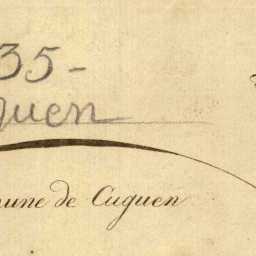 35-
guen
mune de Cuguen